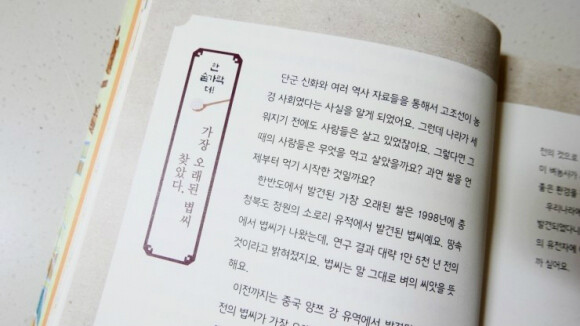 한
숟가락
더
가장 오래된 볍씨
찾았다.
단군 신화와 여러 역사 자료들을 통해서 고조선이 농
경 사회였다는 사실을 알게 되었어요. 그런데 나라가 세
워지기 전에도 사람들은 살고 있었잖아요. 그렇다면 그
때의 사람들은 무엇을 먹고 살았을까요? 과연 쌀을 언
제부터 먹기 시작한 것일까요?
한반도에서 발견된 가장 오래된 쌀은 1998년에 충
청북도 청원의 소로리 유적에서 발견된 볍씨예요. 땅속
에서 볍씨가 나왔는데, 연구 결과 대략 1만 5천 년 전의
것이라고 밝혀졌지요. 볍씨는 말 그대로 벼의 씨앗을 뜻
해요.
이전까지는 중국 양쯔 강 유역에서 발견된
전의 볍씨가 가장 오
전의 것으로
미 벼농사가
좋은 환경을
우리나라
발견되었다니
의 유전자에
까 싶어요.